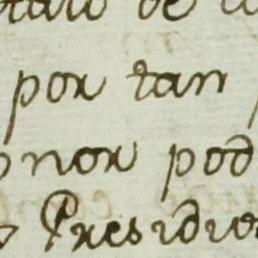 de
por tan
onor pod
Presidio